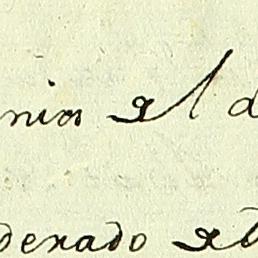 nia el d
derado el